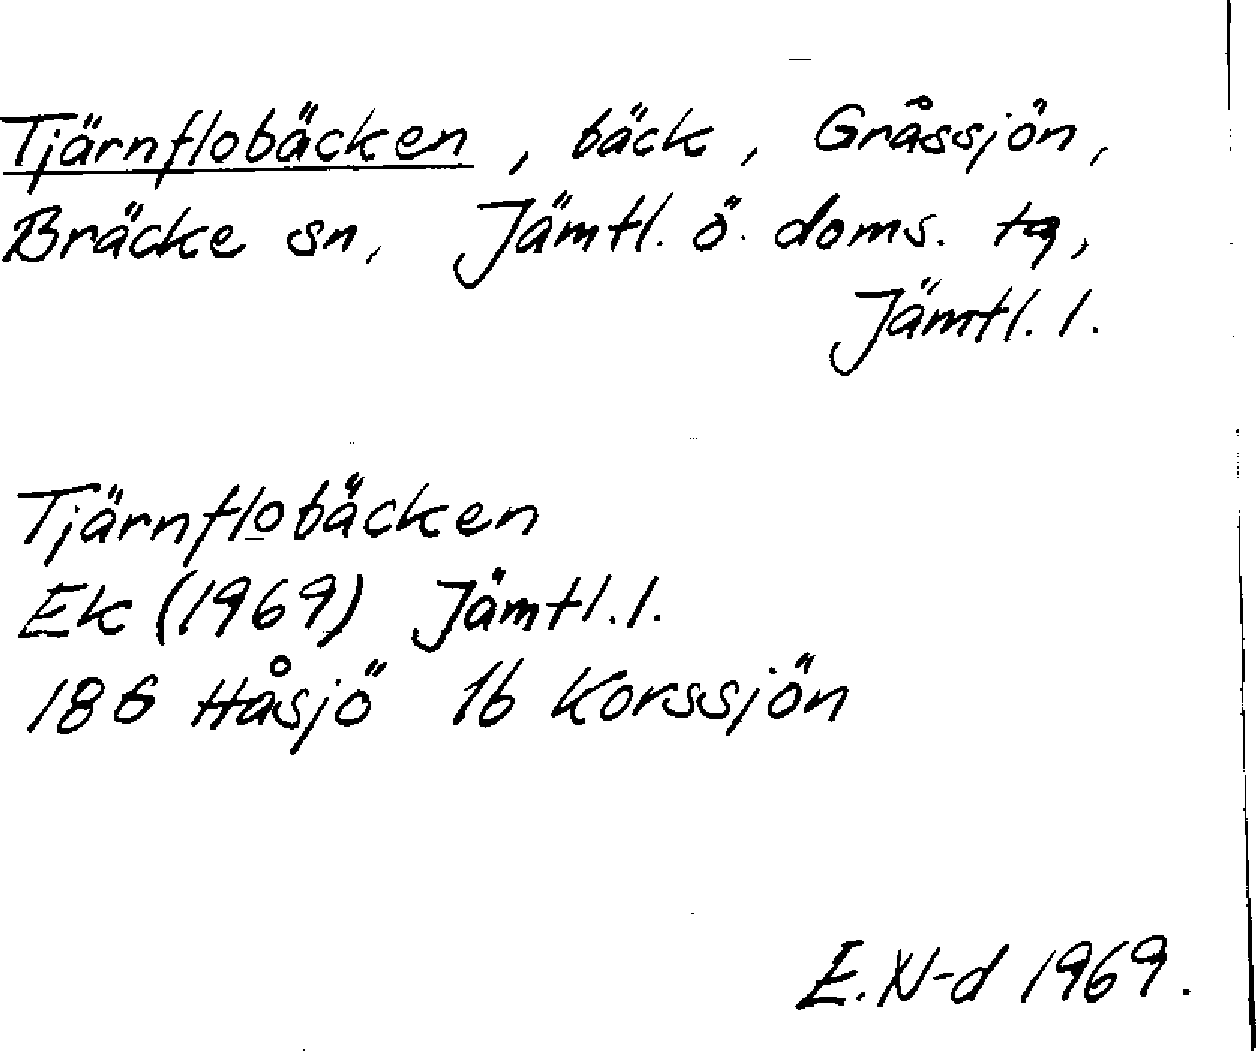 Tjärnflobäcken, bäck, Gråssjön,
Bräcke sn, Jämtl. ö. doms. tg,
Jämtl. l.
Tjärnflobäcken
Ek (1969) Jämtl. l.
186 Håsjö 16 Korssjön
E. N-d 1969.